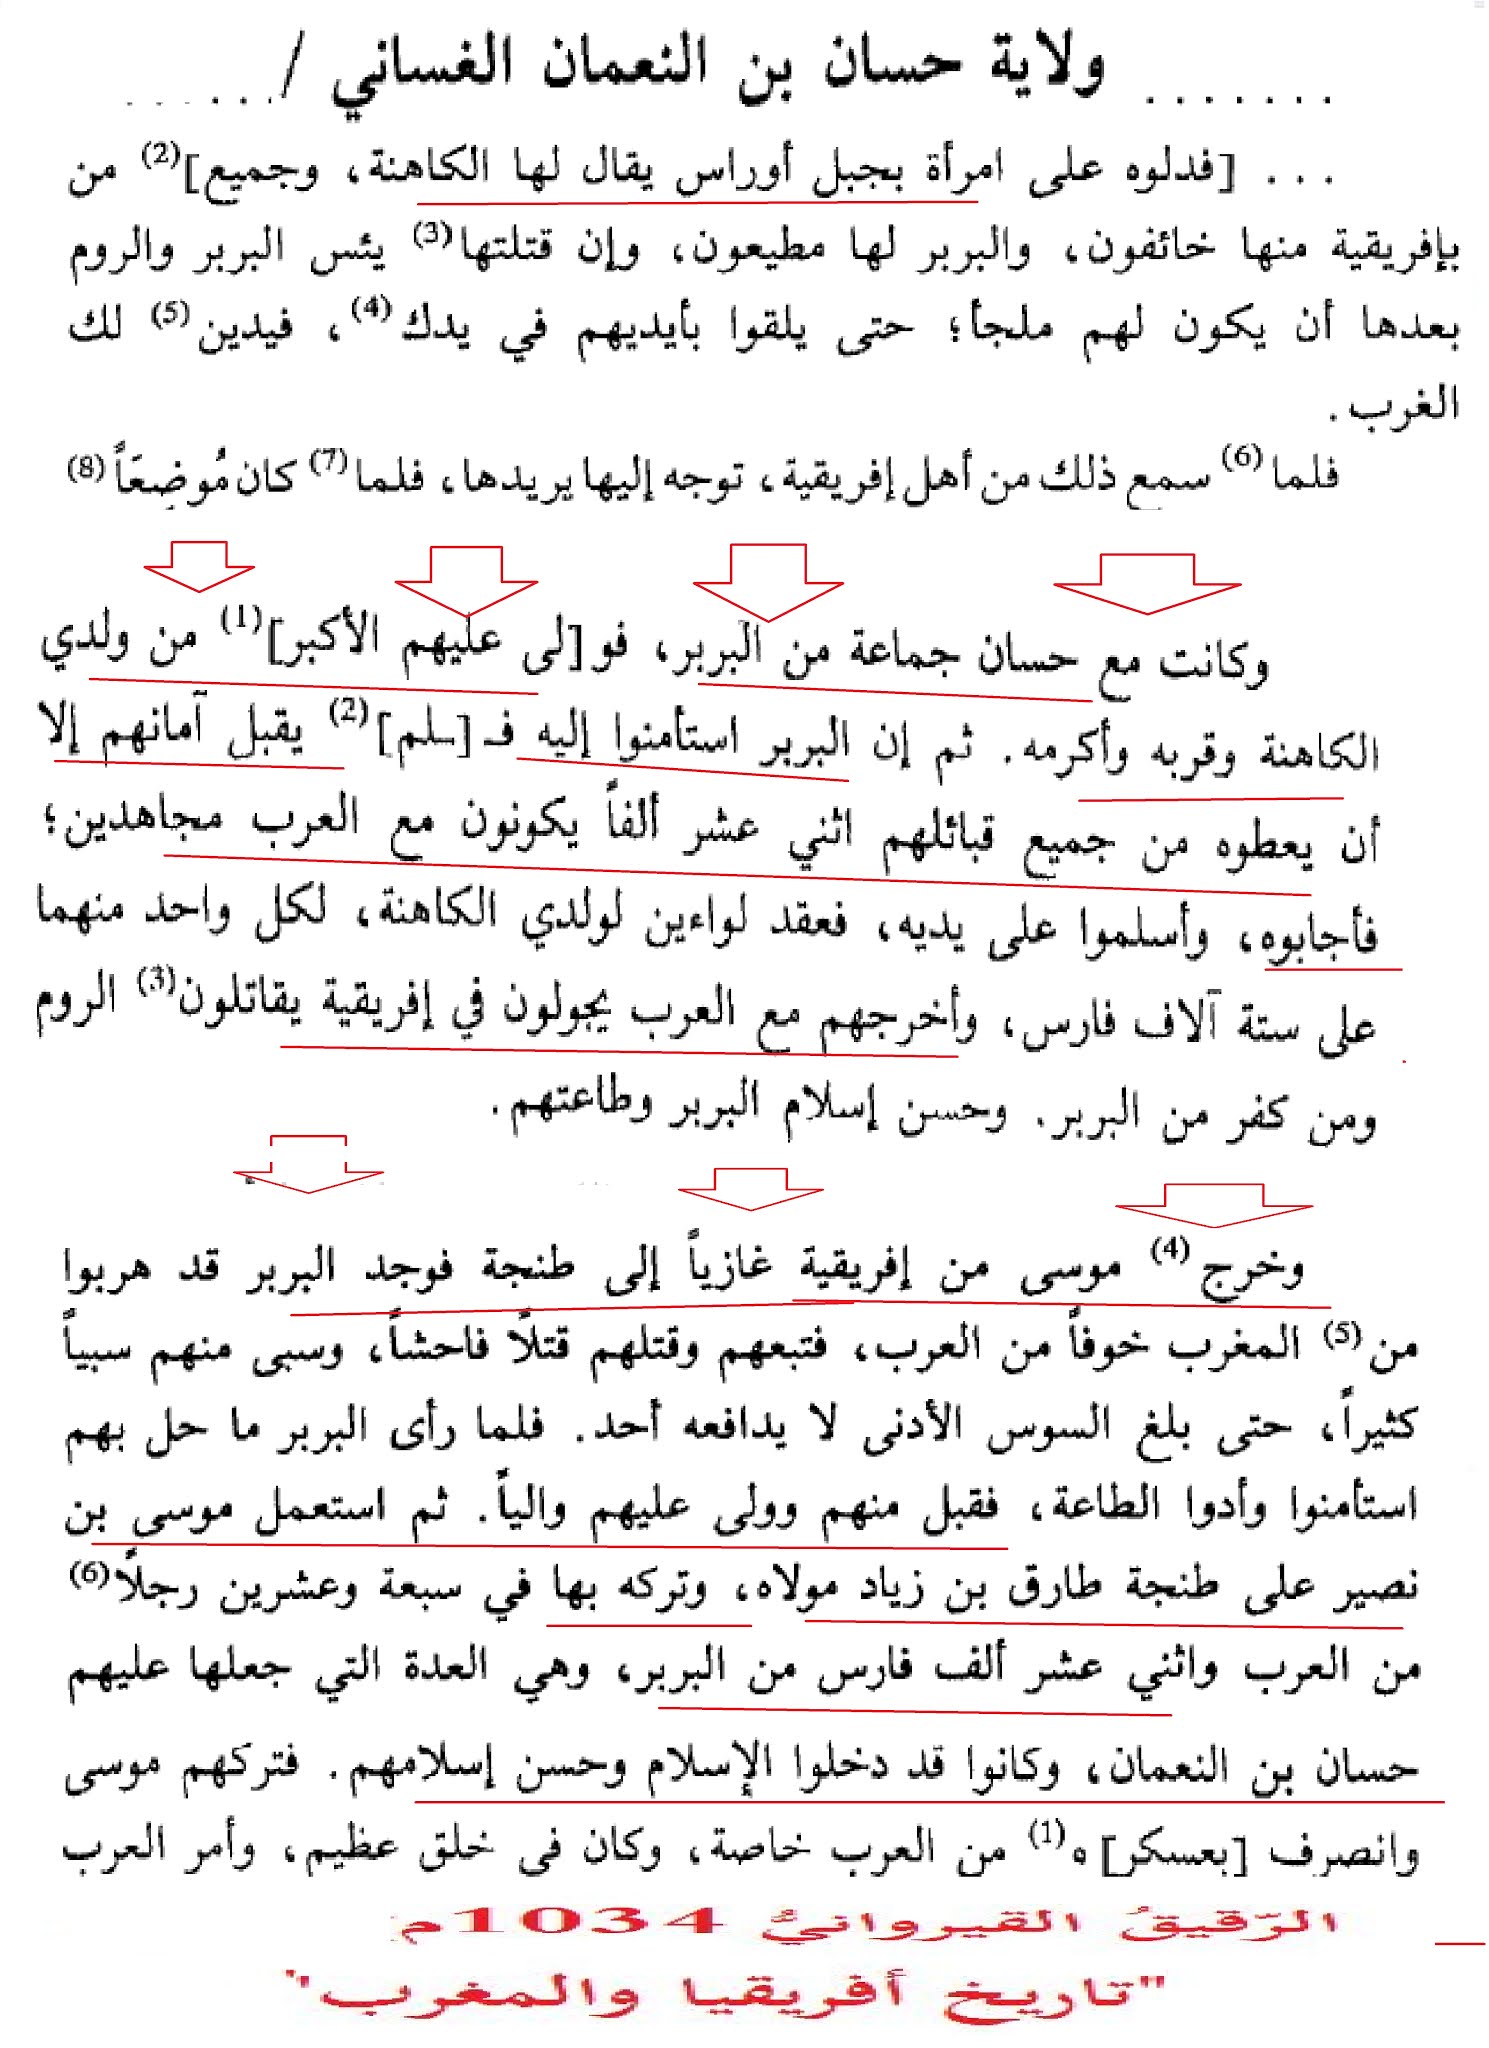 ....... ولاية حسان بن النعمان الغساني / ......
... [فدلوه على امرأة بجبل أوراس يقال لها الكاهنة، وجميع](2) من
بإفريقية منها خائفون، والبربر لها مطيعون، وإن قتلتها(3) يئس البربر والروم
بعدها أن يكون لهم ملجأ؛ حتى يلقوا بأيديهم في يدك(4)، فيدين(5) لك
الغرب.
فلما(6) سمع ذلك من أهل إفريقية، توجه إليها يريدها، فلما(7) كان مُوضِعَاً(8)
وكانت مع حسان جماعة من البربر، فو[لى عليهم الأكبر](1) من ولدي
الكاهنة وقربه وأكرمه. ثم إن البربر استأمنوا إليه فـ[ـلم](2) يقبل آمانهم إلا
أن يعطوه من جميع قبائلهم اثني عشر ألفاً يكونون مع العرب مجاهدين؛
فأجابوه، وأسلموا على يديه، فعقد لواءين لولدي الكاهنة، لكل واحد منهما
على ستة آلاف فارس، وأخرجهم مع العرب يجولون في إفريقية يقاتلون(3) الروم
ومن كفر من البربر. وحسن إسلام البربر وطاعتهم.
وخرج(4) موسى من إفريقية غازياً إلى طنجة فوجد البربر قد هربوا
من(5) المغرب خوفاً من العرب، فتبعهم وقتلهم قتلاً فاحشاً، وسبى منهم سبياً
كثيراً، حتى بلغ السوس الأدنى لا يدافعه أحد. فلما رأى البربر ما حل بهم
استأمنوا وأدوا الطاعة، فقبل منهم وولى عليهم والياً. ثم استعمل موسى بن
نصير على طنجة طارق بن زياد مولاه، وتركه بها في سبعة وعشرين رجلاً(6)
من العرب واثني عشر ألف فارس من البربر، وهي العدة التي جعلها عليهم
حسان بن النعمان، وكانوا قد دخلوا الإسلام وحسن إسلامهم. فتركهم موسى
وانصرف [بعسكر]ه(1) من العرب خاصة، وكان في خلق عظيم، وأمر العرب
الرّقيقُ القيروانيُّ 1034م
"تاريخ أفريقيا والمغرب"